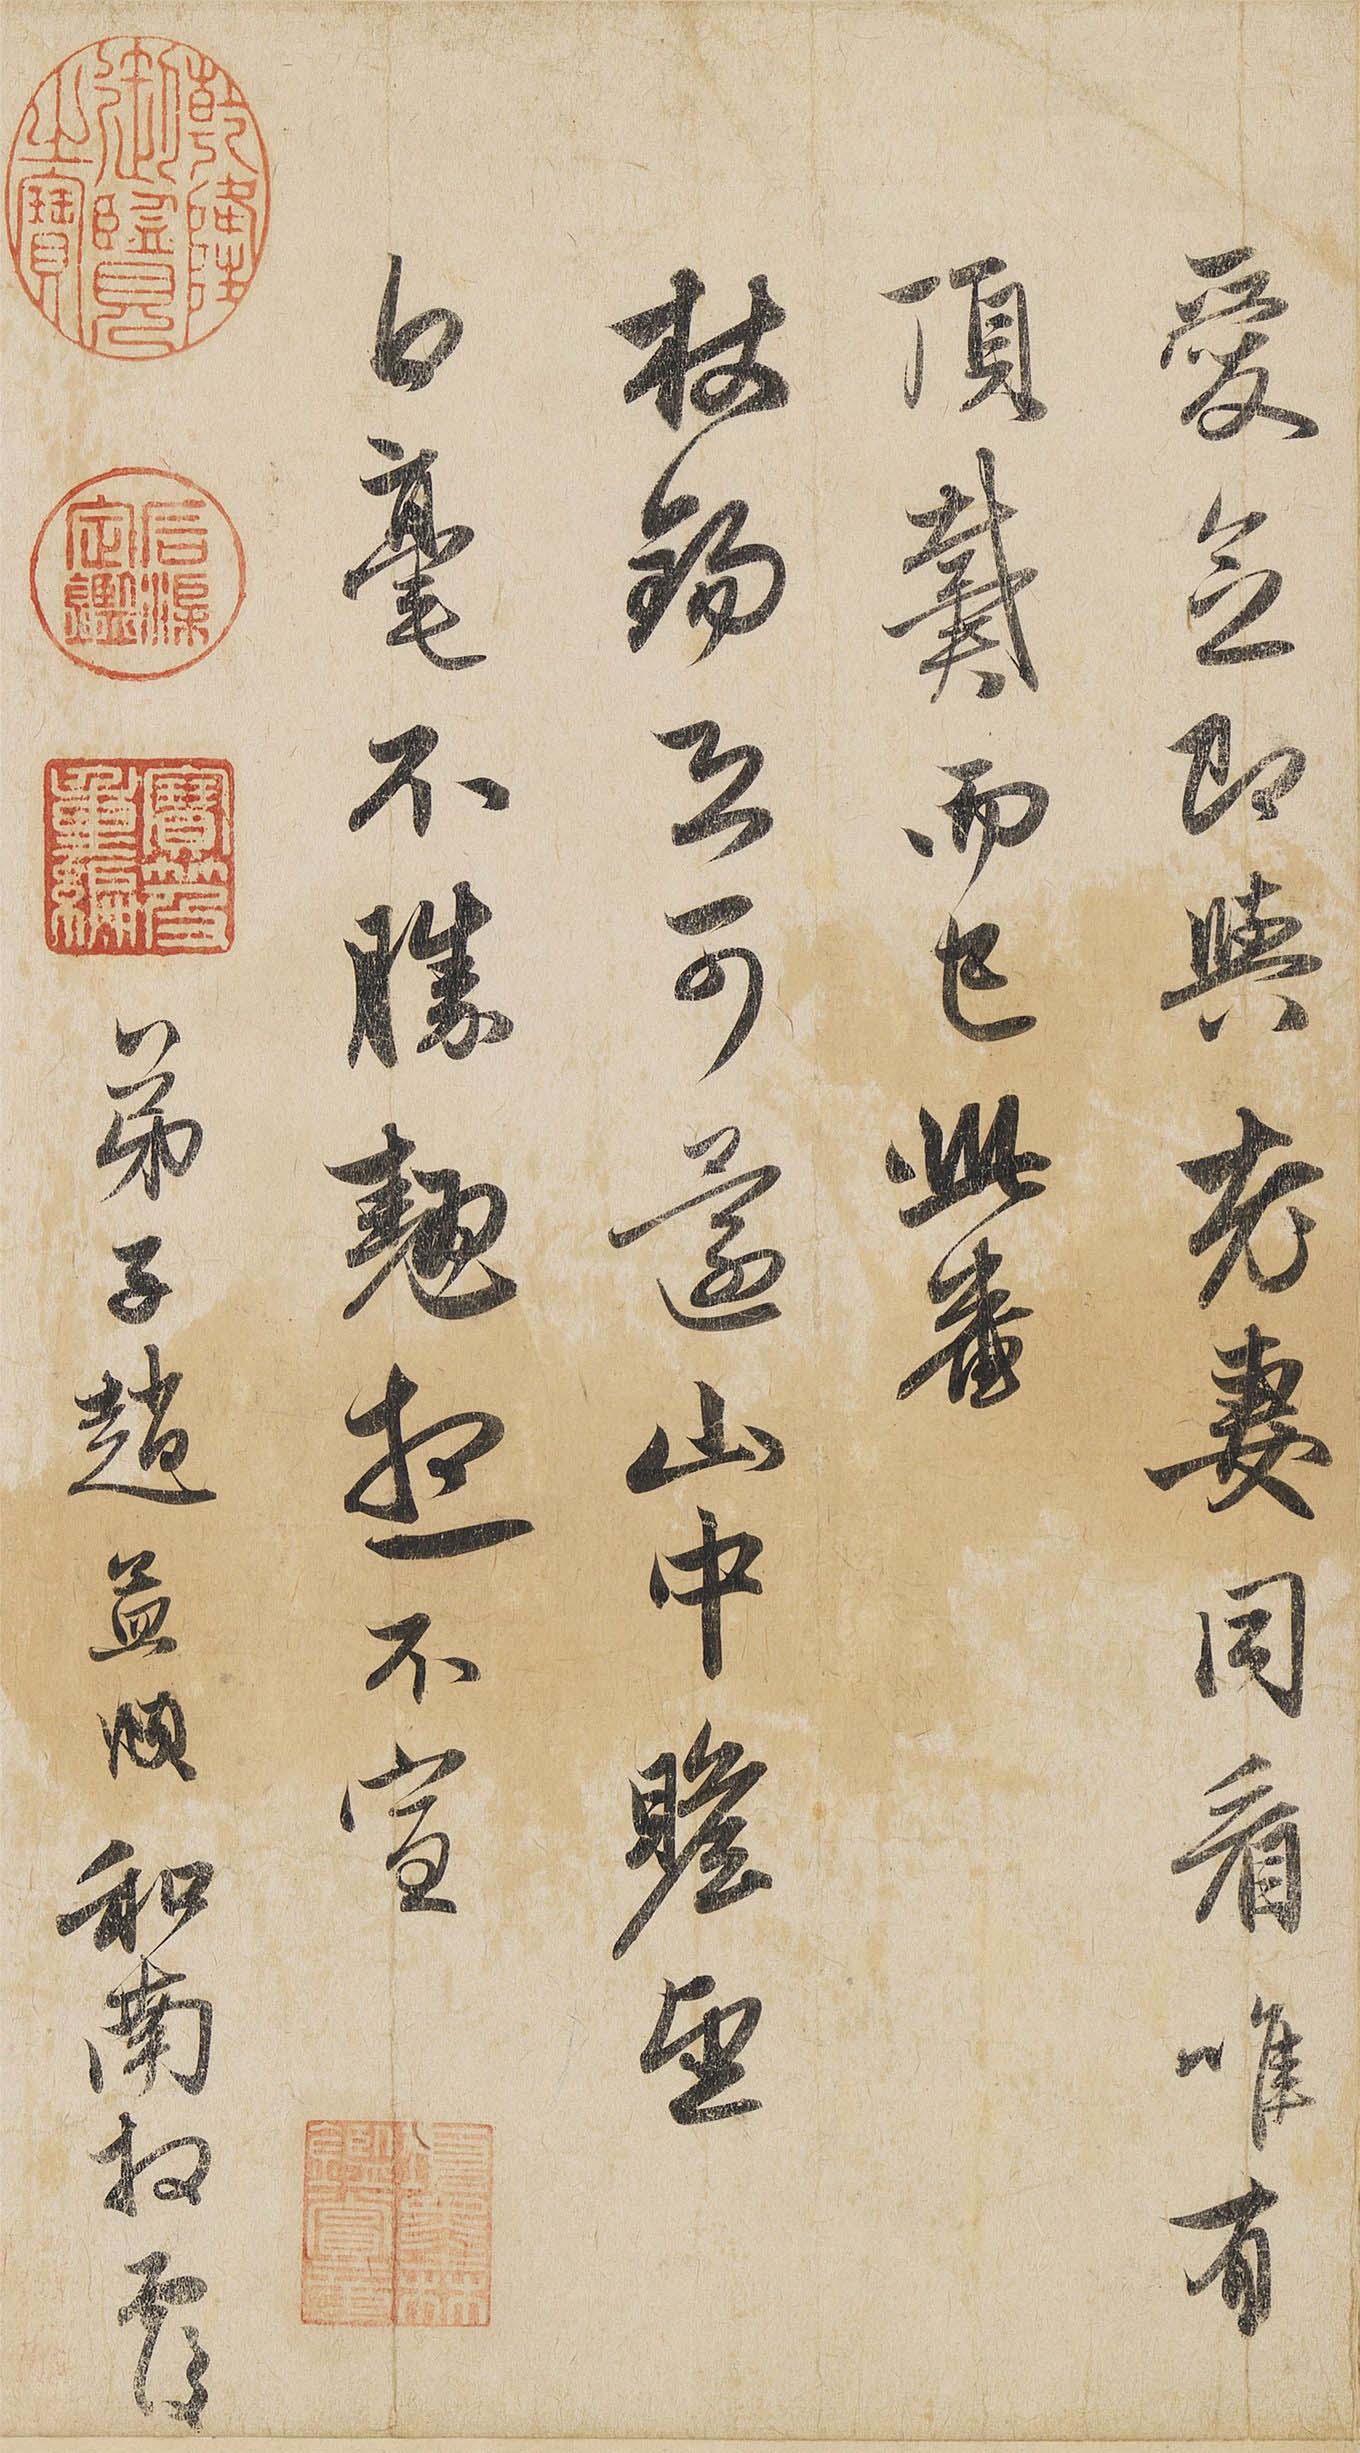 愛念即與老妻同看唯有
頂戴而已此番
杖錫可還山中瞻望
白毫不勝翹想不宣
弟子趙孟頫和南拜覆
乾隆御覽之寶
石渠定鑑
寶笈重編